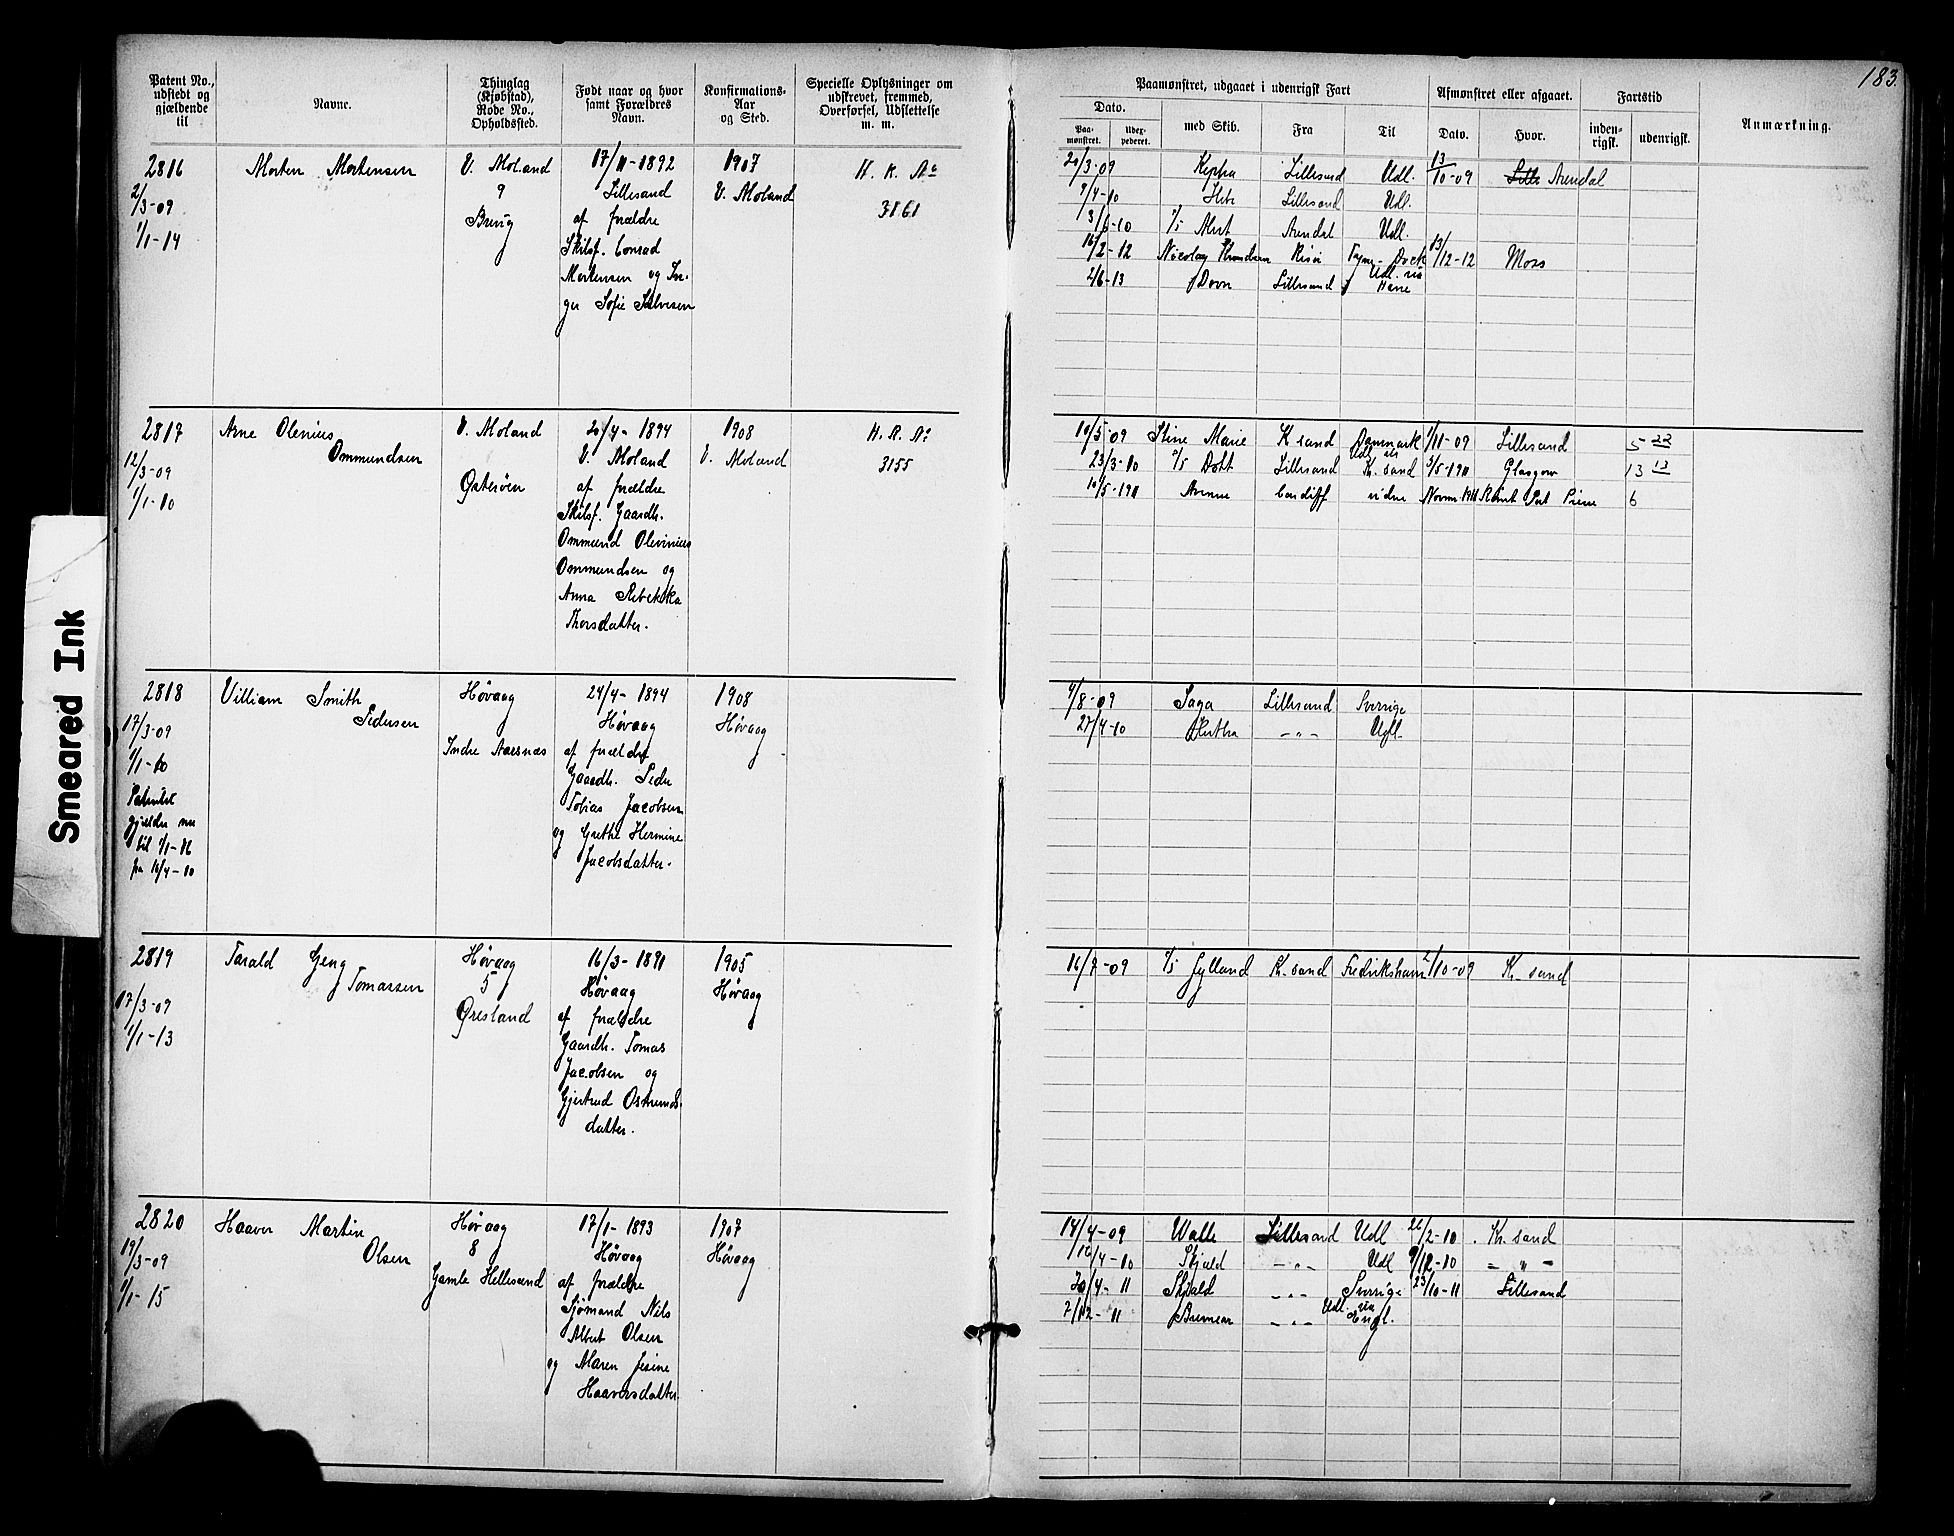 183.
Patent No., udstedt og gjældende til
Navne.
Thinglag (Kjøbstad), Rode No., Opholdssted.
Født naar og hvor samt Forældres Navn.
Konfirmations-Aar og Sted.
Specielle Oplysninger om udskrevet, fremmed, Overførsel, Udslettelse m. m.
Paamønstret, udgaaet i udenrigsk Fart
Dato.
Paa-mønstret.
Udex-pederet.
med Skib.
Fra
Til
Afmønstret eller afgaaet.
Dato.
Hvor.
Fartstid
inden-rigsk.
udenrigsk.
Anmærkning.
2816
2/3-09
1/1-14
Morten Mortensen
V. Moland
9
17/11-1892
Lillesand
af forældre
Skibsf. Conrad
Mortensen og In-
ger Sofie Salvesen
1907
V. Moland
H. R. No
3161
20/3-09 Lillesand Udl. 13/10-09 Lille Arendal
9/4-10 Hebe Lillesand Udl.
3/6-10 Arendal Udl.
16/2-12 Risør Tyne-Dock 13/12-12 Moss
2/6-13 Dovre Lillesand Udl. via
2817
12/3-09
1/1-10
Arne Olenius
Ommundsen
V. Moland
Østerøen
20/4-1894
V. Moland
af forældre
Skibsf. Gaardb.
Ommund Olevinius
Ommundsen og
Anna Rebekka
Thorsdatter.
1908
V. Moland
H. R. No
3155
10/5-09 Stine Marie K sand Danmark 1/11-09 Lillesand 5 22
23/3-10 S/S Dott Lillesand Udl. via K. sand 3/5-1911 Glasgow 13 13
10/5-1911 Cardiff videre Port Pirie 6
2818
17/3-09
1/1-10
Patentet
gjælder nu
til 1/1-16
fra 16/4-10
Villiam Smith
Pedersen
Høvaag
Indre Aarsnæs
24/4-1894
Høvaag
af forældre
Gaardb. Peder
Tobias Jacobsen
og Grethe Hermine
Jacobsdatter.
1908
Høvaag
4/8-09 Saga Lillesand Sverrige
27/4-10 Hertha -"- Udl.
2819
17/3-09
1/1-13
Tarald Geng
Tomassen
Høvaag
5
Øresland
16/3-1891
Høvaag
af forældre
Gaardb. Tomas
Jacobsen og
Gjertrud Osmunds-
datter.
1905
Høvaag
16/7-09 S/S Jylland Kr. sand Fredrikshavn 1/10-09 Kr. sand
2820
19/3-09
1/1-15
Haaver Martin
Olsen
Høvaag
8
Gamle Hellesund
17/1-1893
Høvaag
af forældre
Sjømand Nils
Albert Olsen
og Maren Jesine
Haaversdatter.
1907
Høvaag
14/4-09 Walle Lillesand Udl 22/2-10 Kr. sand
16/4-10 Skjald -"- Udl 9/12-10 - " -
20/4-11 Skjald -"- Sverige 23/10-11 Lillesand
7/12-11 -"- Udl. via Engl.
Smeared Ink